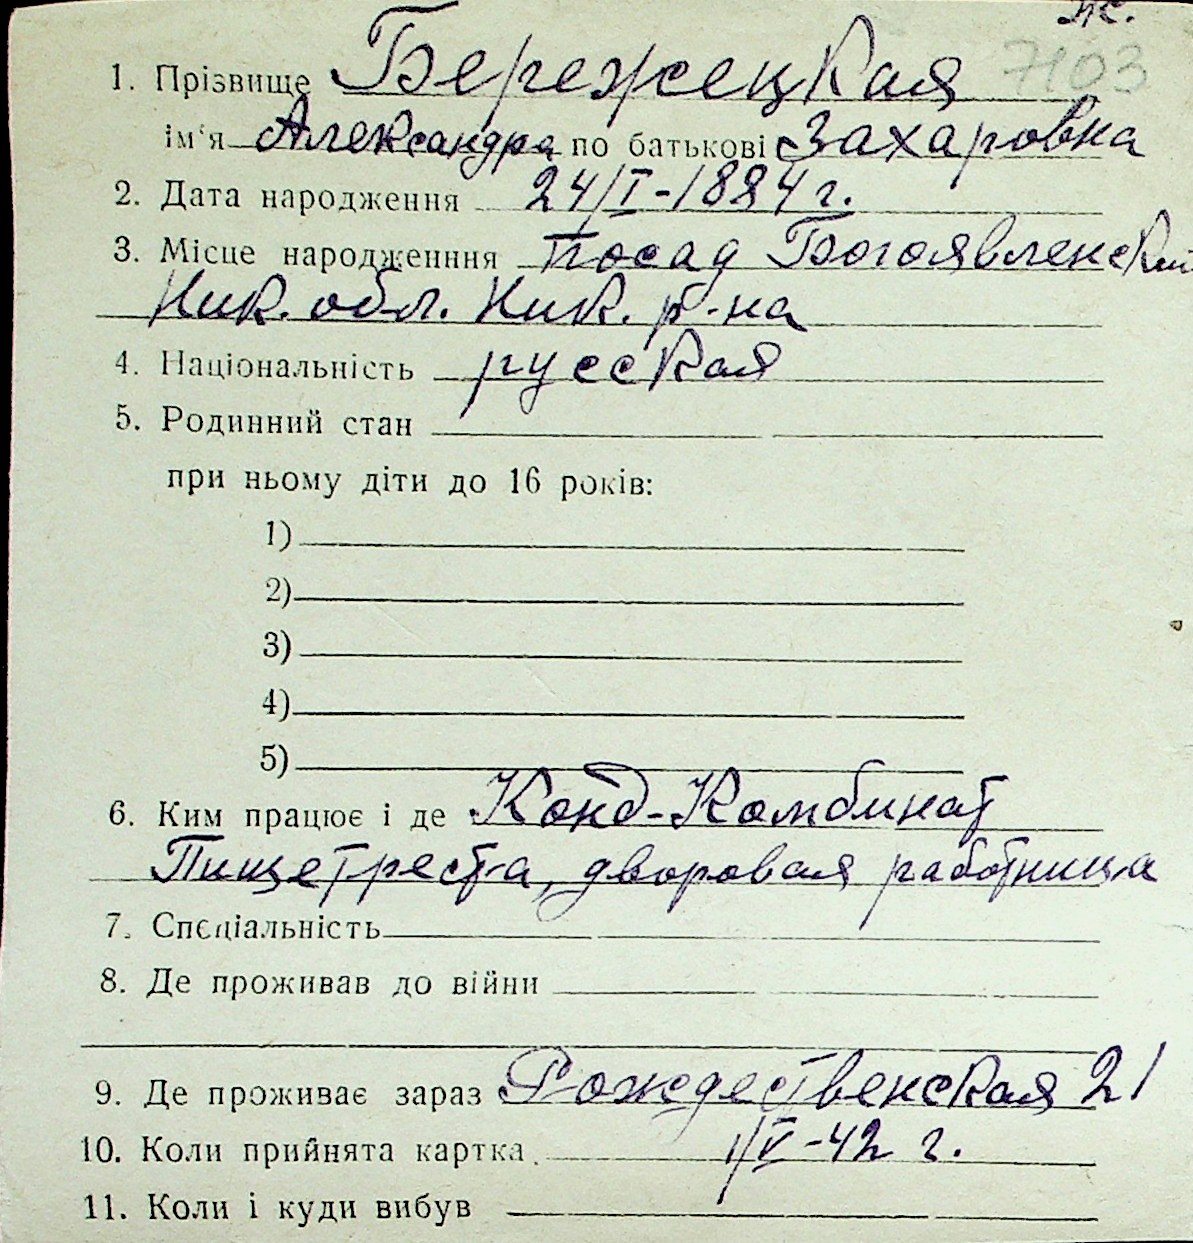 ж.
7103
1. Прізвище Бережецкая
ім'я Александра по батькові Захаровна
2. Дата народження 24/I-1884 г.
3. Місце народженння посад Богоявленский
Ник. обл. Ник. р-на
4. Національність русская
5. Родинний стан
при ньому діти до 16 років:
1)
2)
3)
4)
5)
6. Ким працює і де Конд-Комбинат
Пищетреста, дворовая работница
7. Спеціальність
8. Де проживав до війни
9. Де проживає зараз Рождественская 21
10. Коли прийнята картка 1/V-42 г.
11. Коли і куди вибув